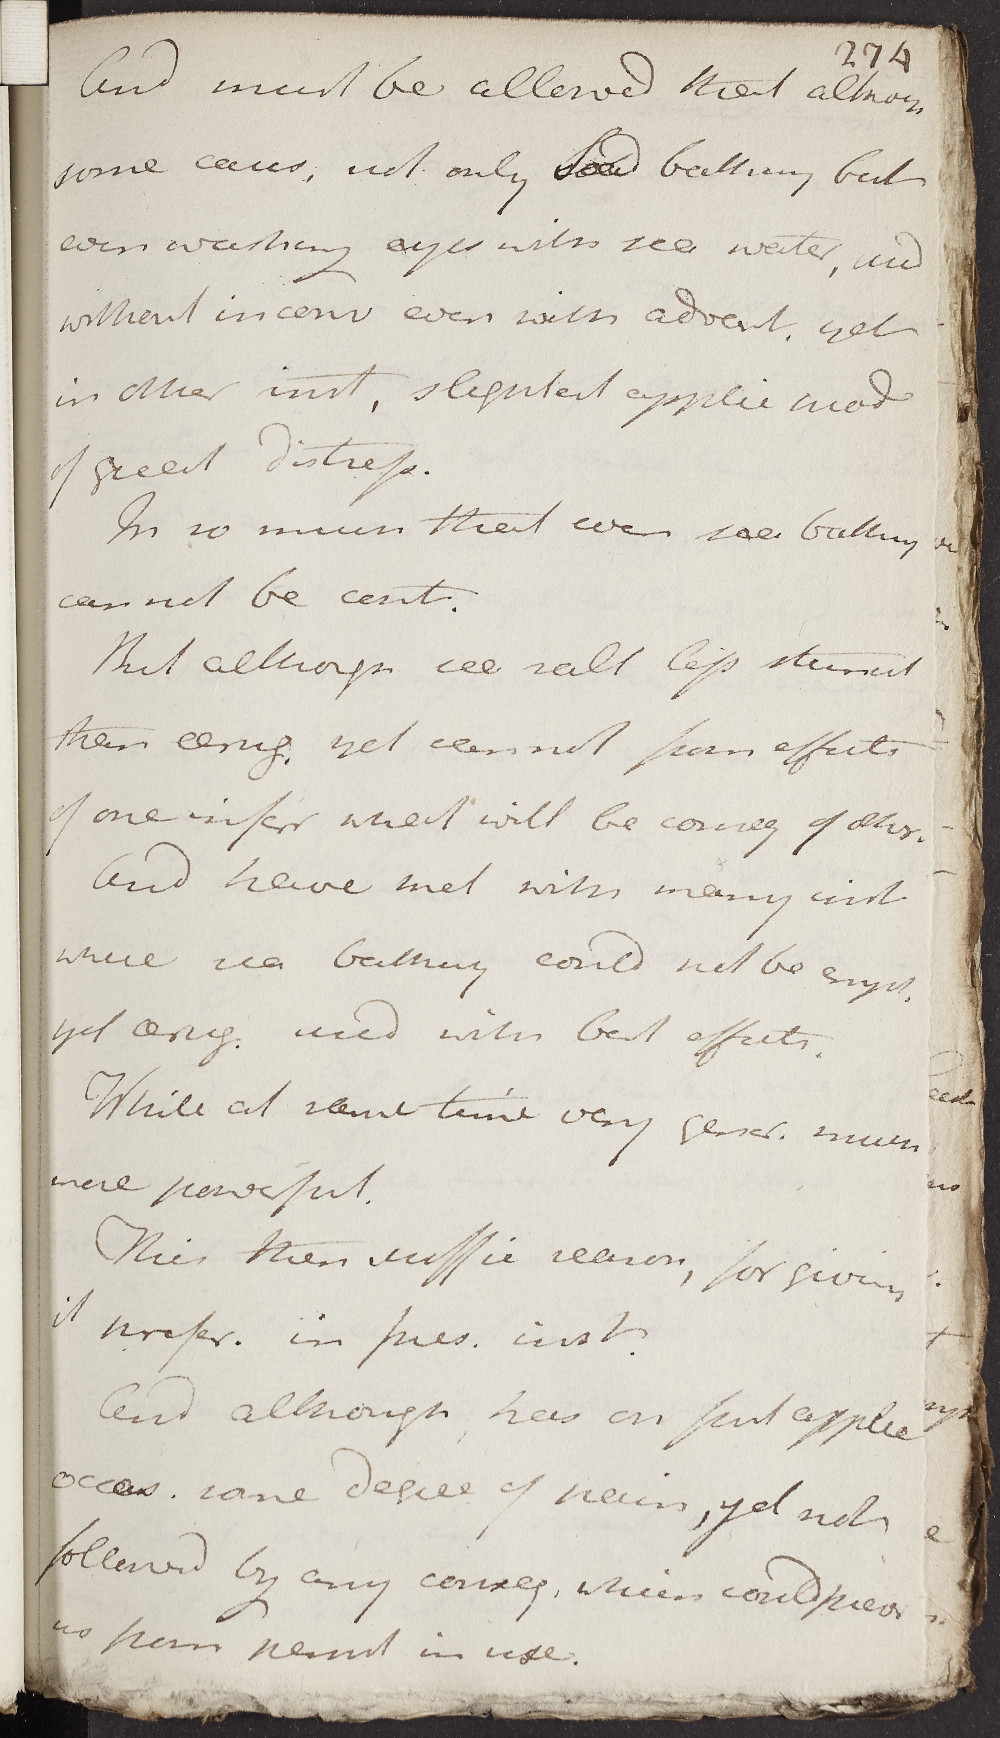 274
And must be allowed that althoug
some cases, not only bathing but
even washing eyes with sea water, used
without inconv even with advant. yet
in other inst, slightest applic prod
of great distress.
In so much that even sea bathing
cannot be cont.
But although sea salt less stimul
than aerug. yet cannot from effects
of one infer what will be conseq of other.
And have met with many inst
where sea bathing could not be empl.
yet aerug. used with best effects.
While at same time very gener. much
more powerful.
This then suffic reason, for giving
it prefer. in pres. inst.
And although, has on first applic
occas. some degree of pain, yet not
followed by any conseq. which could prev
us from persist in use.